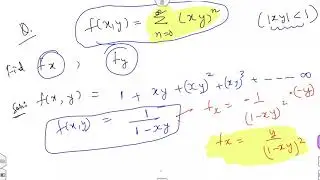 Q. f(x,y) = ∑_{n=0}^{∞} (xy)^n (|xy| < 1)
find fx , fy
Soln: f(x,y) = 1 + xy + (xy)^2 + (xy)^3 + ----- ∞
f(x,y) = 1/(1-xy) → fx = -1/(1-xy)^2 · (-y)
fx = y/(1-xy)^2